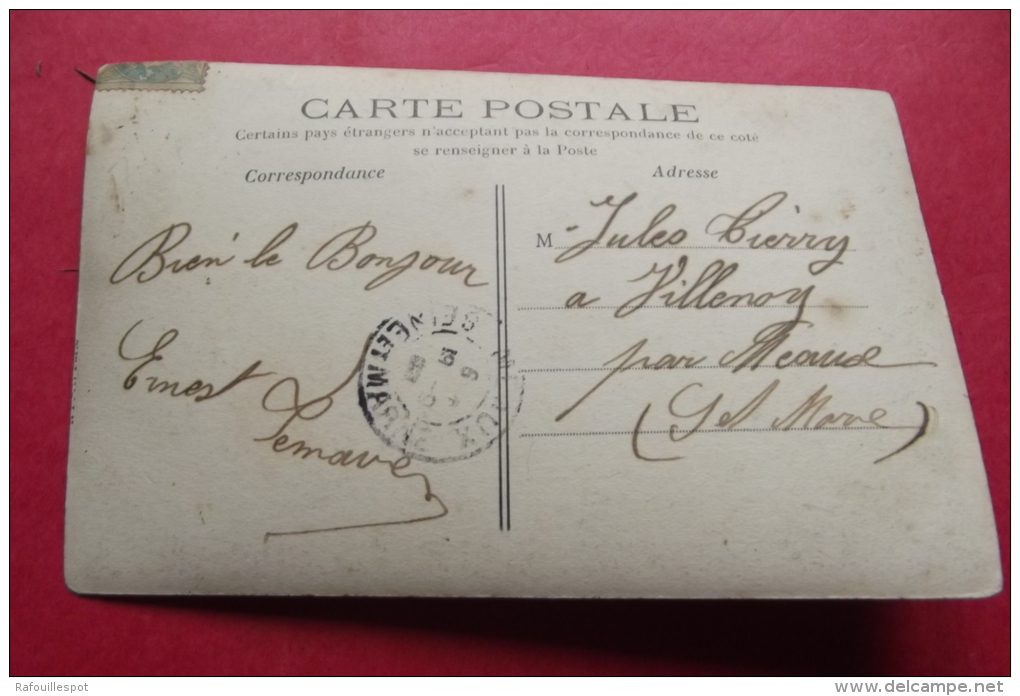 CARTE POSTALE
Certains pays étrangers n'acceptant pas la correspondance de ce coté
se renseigner à la Poste
Correspondance
Adresse
Bien le Bonjour
Ernest
M Jules Tierry
a Villenoy
par Meaux
(S et Marne)
MEAUX
SEINE ET MARNE
Rafouillespot
www.delcampe.net